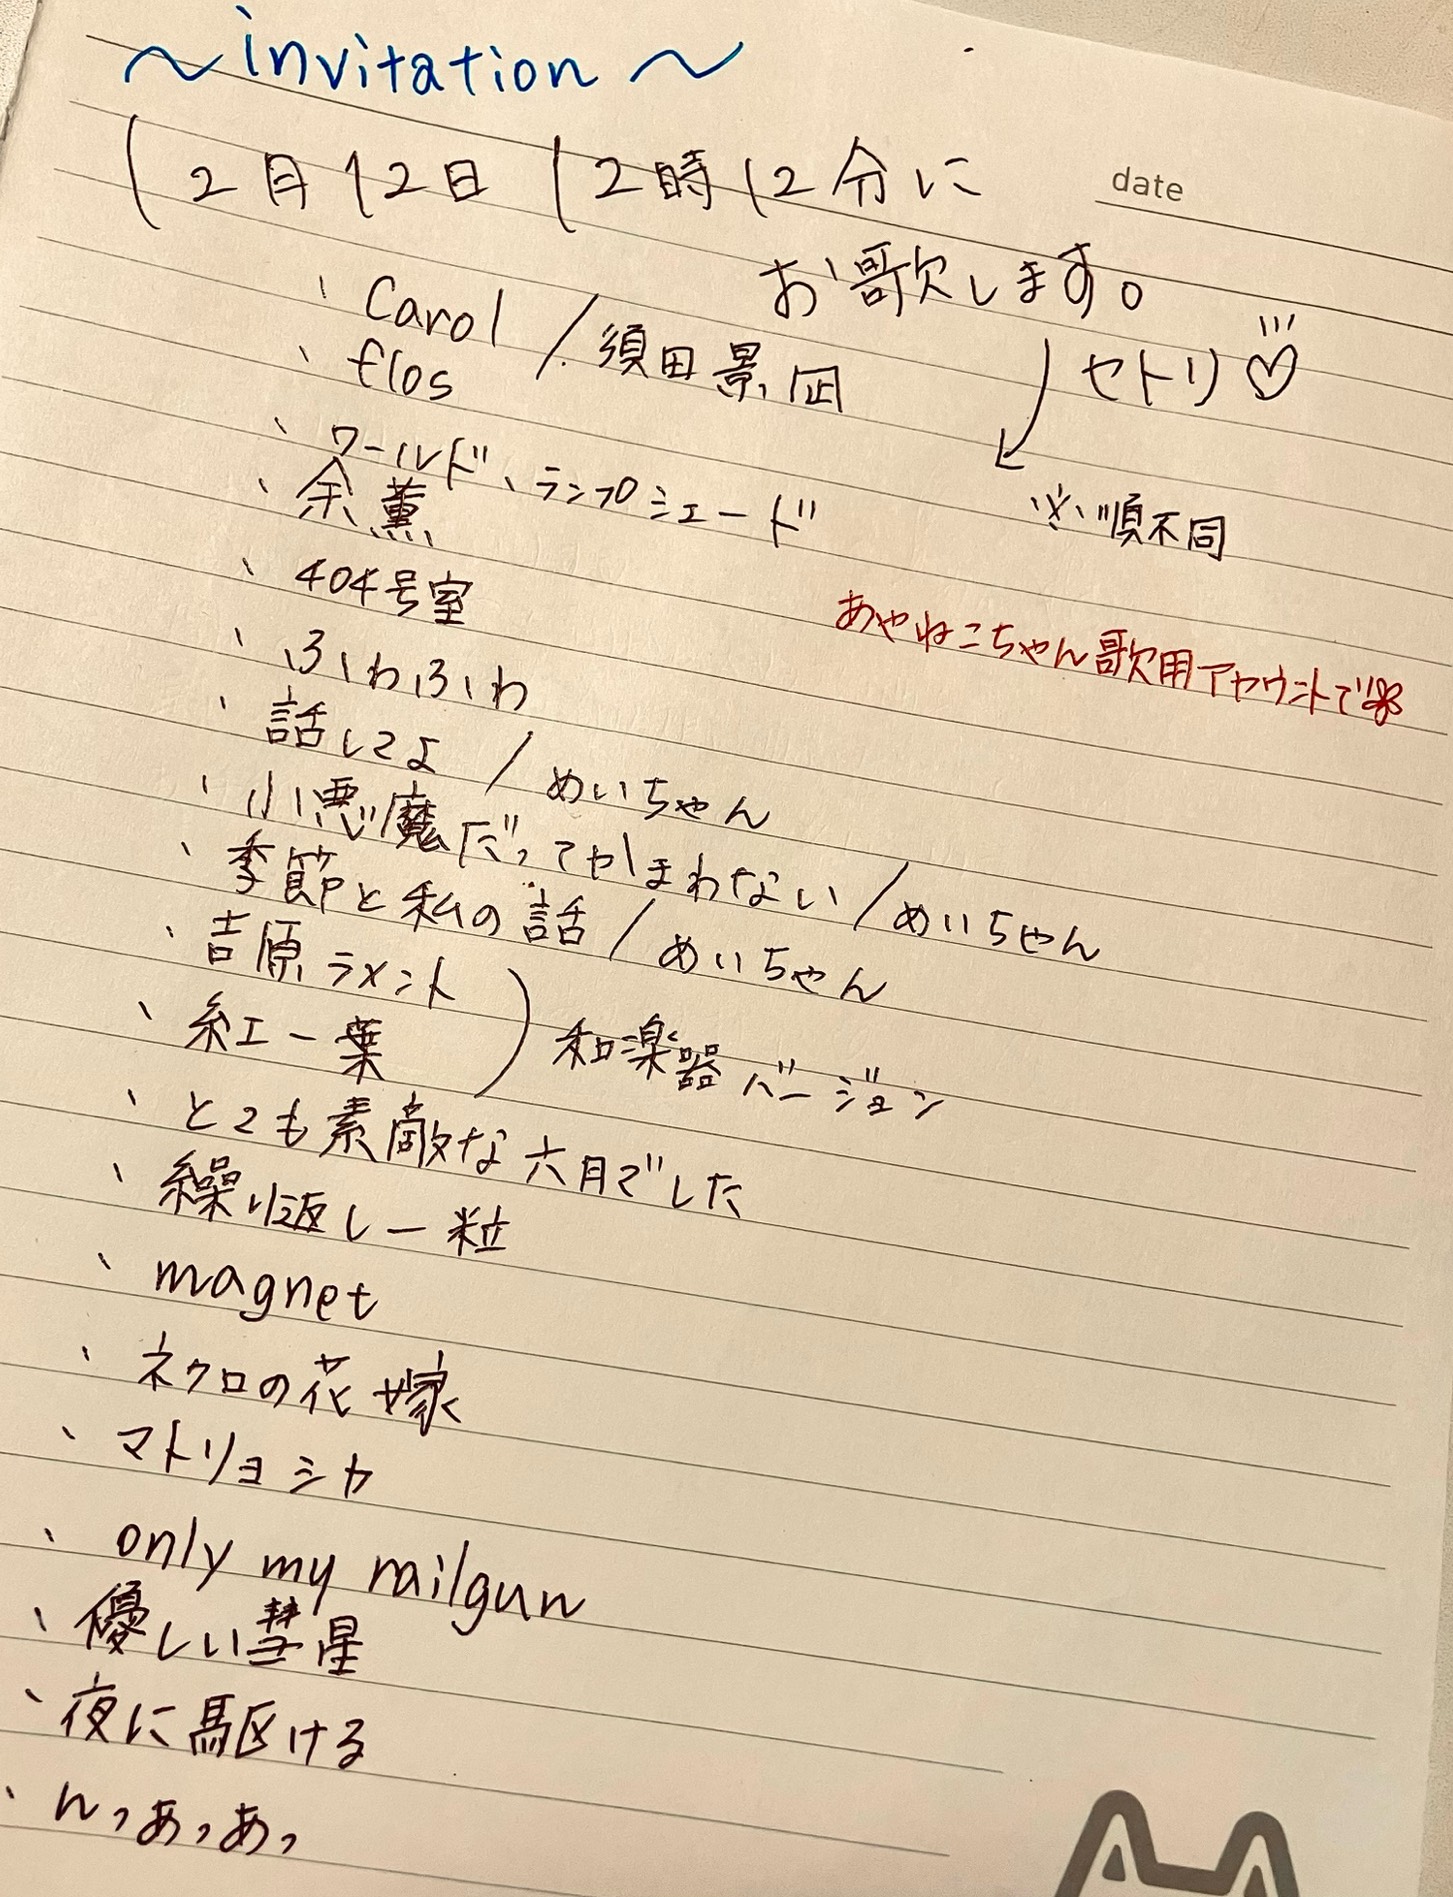 ～invitation～
12月12日 12時12分に
date
お歌します。
セトリ♡
※順不同
あやねこちゃん歌用アカウントで
、Carol / 須田景凪
、flos
、ワールド、ランプシェード
、余薫
、404号室
、ふわふわ
、話してよ / めいちゃん
、小悪魔だってかまわない / めいちゃん
、季節と私の話 / めいちゃん
、吉原ラメント
、紅一葉 ) 和楽器バージョン
、とても素敵な六月でした
、繰り返し一粒
、magnet
、ネクロの花嫁
、マトリョシカ
、only my railgun
、優しい彗星
、夜に駆ける
、んっあっあっ